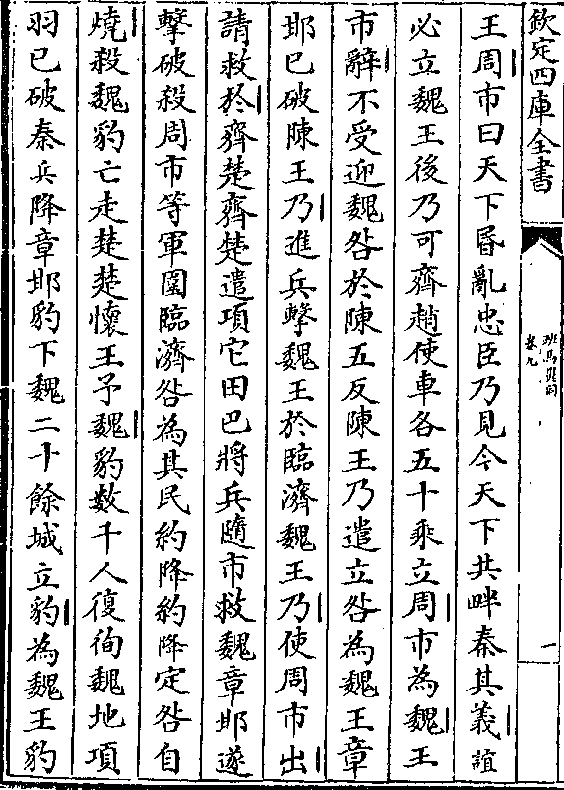 欽定四庫全書
班馬異同
卷九
一
王周市曰天下昬亂忠臣乃見今天下共畔秦其義誼
必立魏王後乃可齊趙使車各五十乘立周市為魏王
市辭不受迎魏咎於陳五反陳王乃遣立咎為魏王章
邯已破陳王乃進兵擊魏王於臨濟魏王乃使周市出
請救於齊楚齊楚遣項它田巴將兵隨市救魏章邯遂
擊破殺周市等軍圍臨濟咎為其民約降約降定咎自
燒殺魏豹亡走楚楚懷王予魏豹數千人復徇魏地項
羽已破秦兵降章邯豹下魏二十餘城立豹為魏王豹